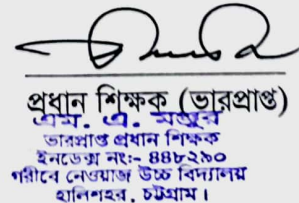 প্রধান শিক্ষক (ভারপ্রাপ্ত)
এম. এ. মঞ্জুর
ভারপ্রাপ্ত প্রধান শিক্ষক
ইনডেক্স নং:- ৪৪৮২৯০
গরীবে নেওয়াজ উচ্চ বিদ্যালয়
হালিশহর, চট্টগ্রাম।